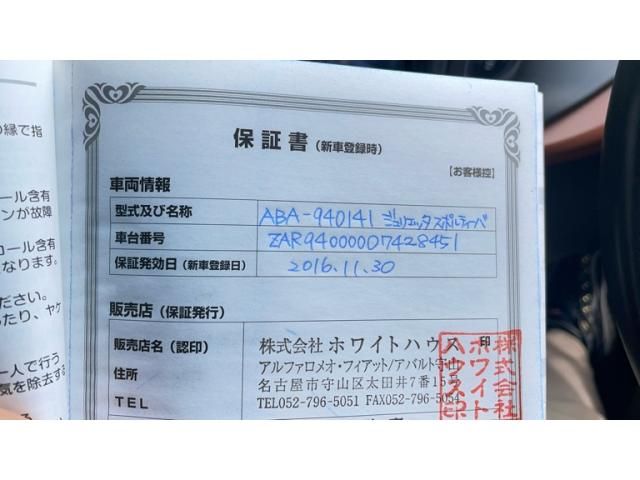 の縁で指
コール含有
ンが故障
コール含有
なります。
ださい。
ったり、ヤケ
一人で行う
気を除去する
保証書（新車登録時）
【お客様控】
車両情報
型式及び名称 ABA-940141 ジュリエッタ スポルティーバ
車台番号 ZAR94000007428451
保証発効日（新車登録日） 2016.11.30
販売店（保証発行）
販売店名（認印） 株式会社 ホワイトハウス 印
アルファロメオ・フィアット/アバルト守山
住所 名古屋市守山区太田井7番15号
TEL TEL052-796-5051 FAX052-796-5054
株式会社
ホワイト
ハウス印